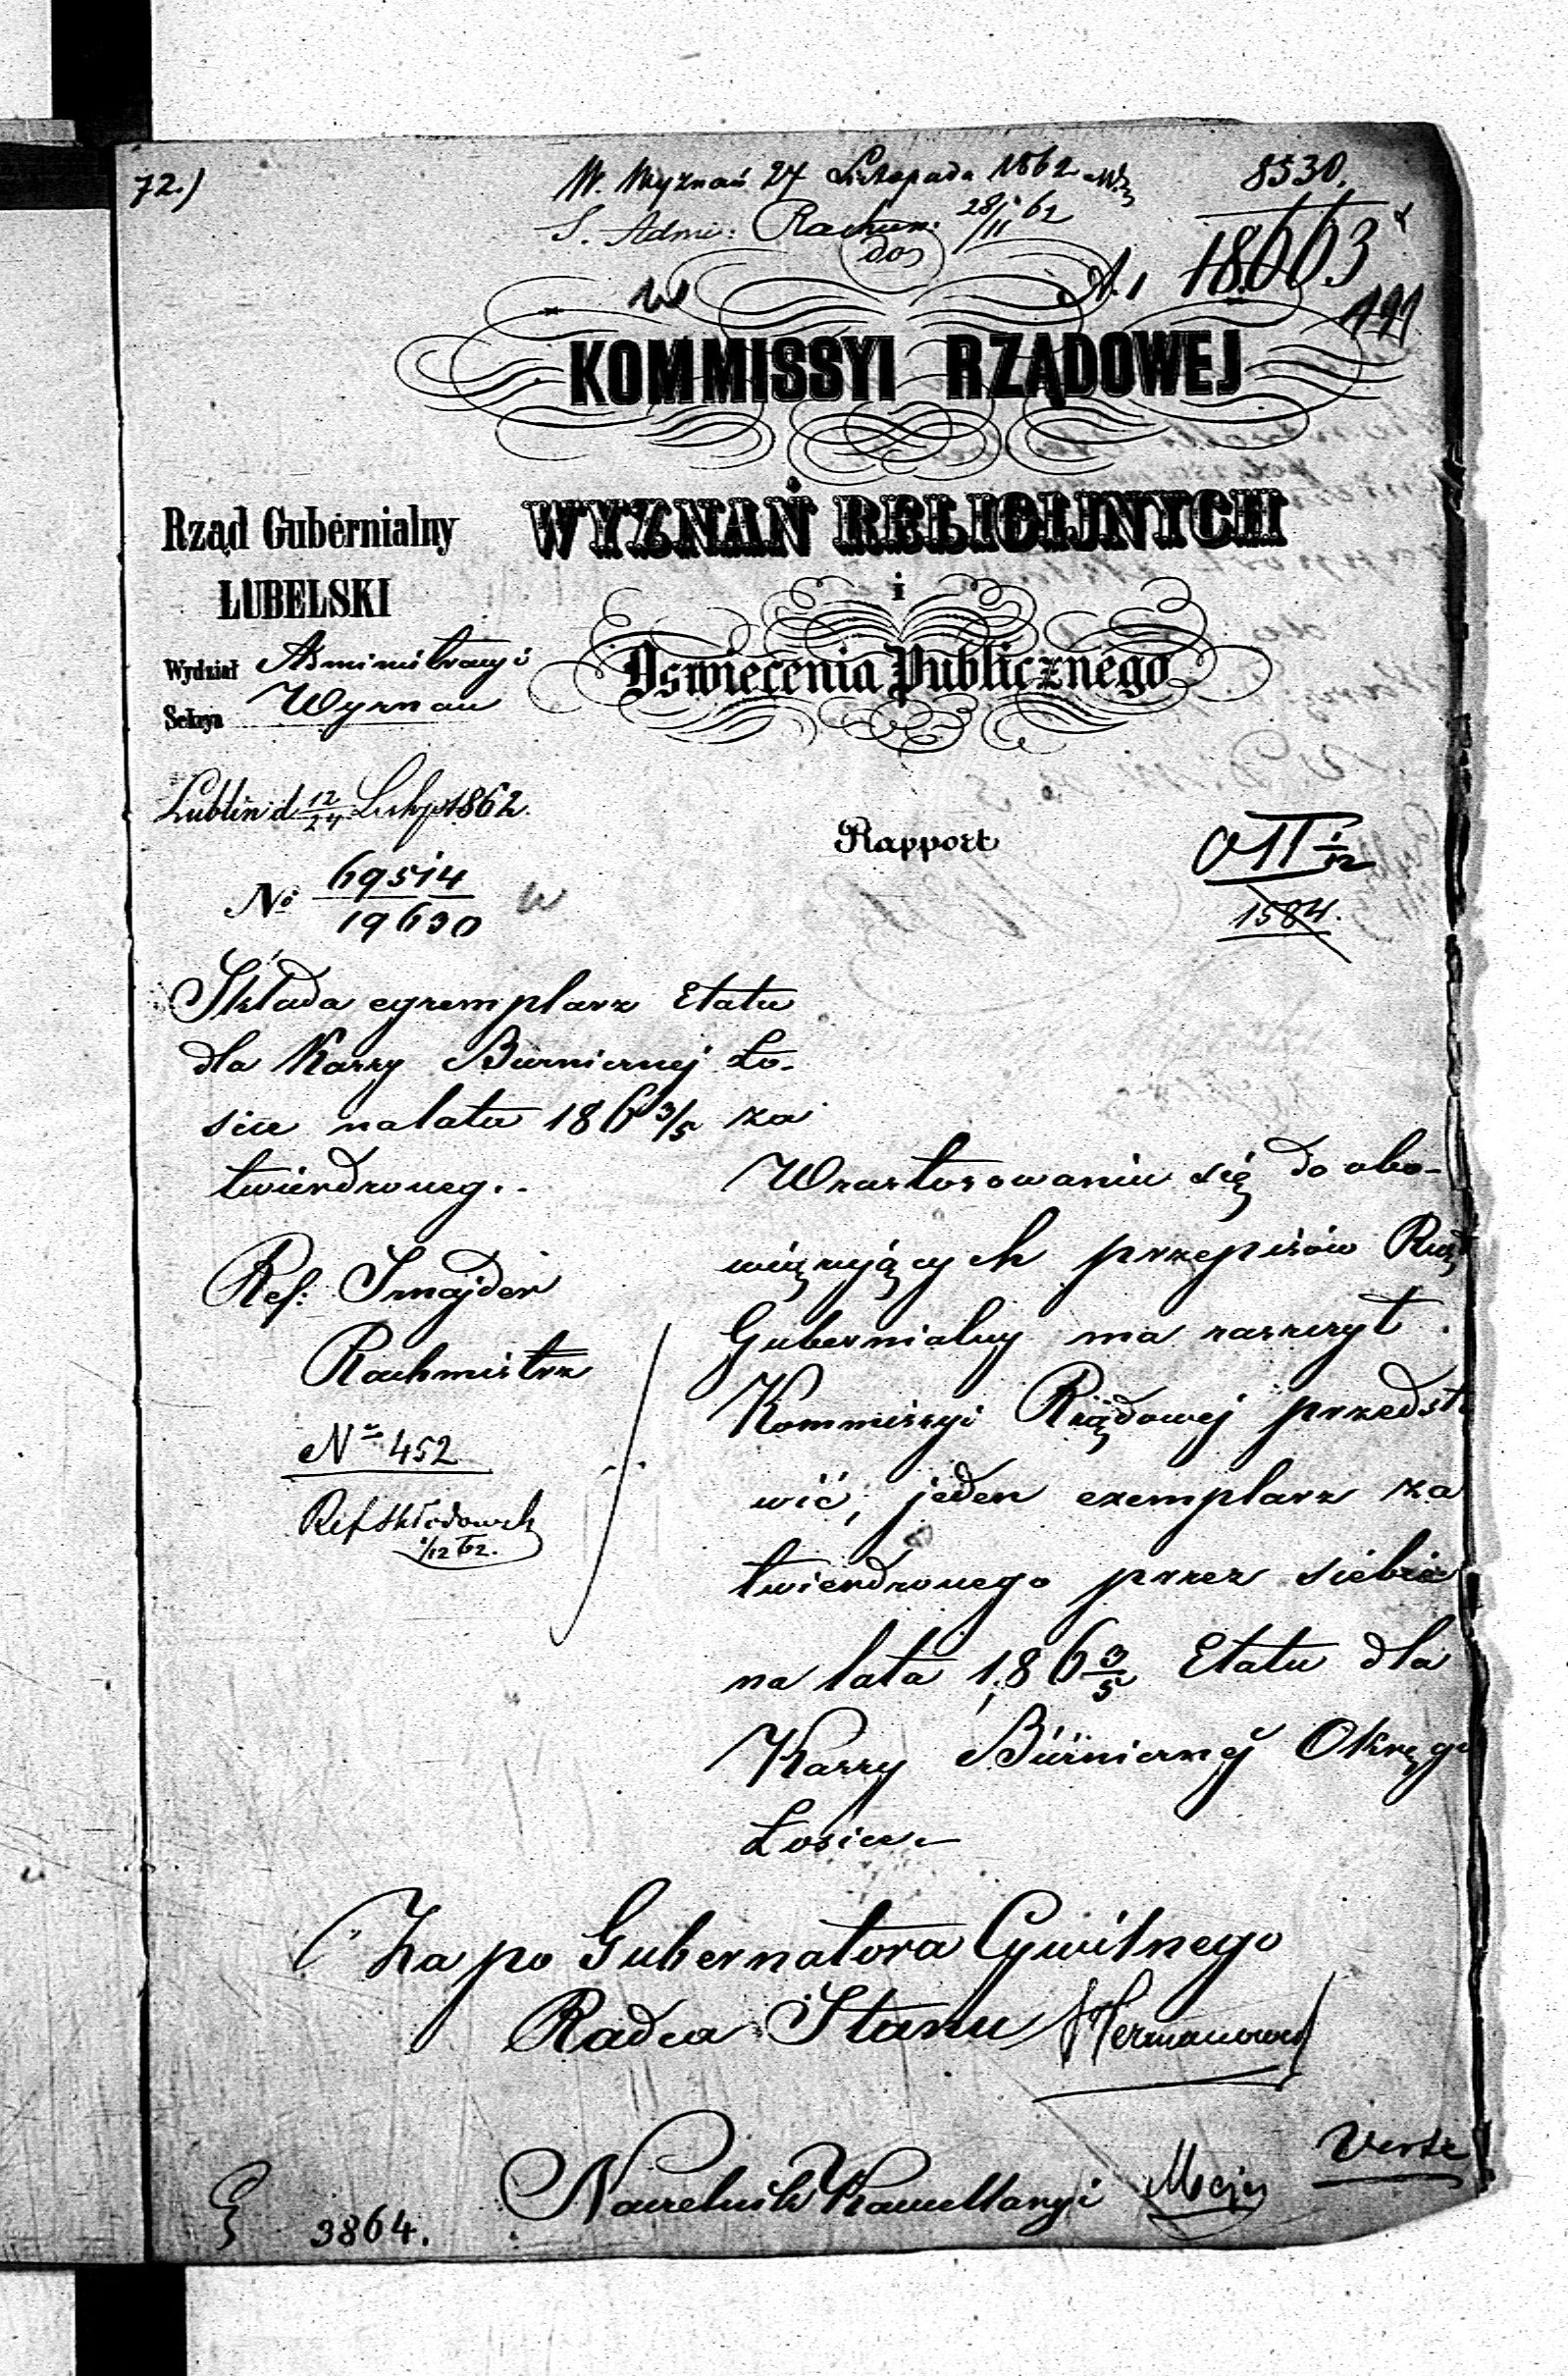 72.)
W. Wyznań 24 Listopada 1862
8530.
S. Admi: Rachun: 28/11 62
do
w
N. 18663
191
KOMMISSYI RZĄDOWEJ
WYZNAŃ RELIGIJNYCH
i
Oświecenia Publicznego
Rząd Gubernialny
LUBELSKI
Wydział Administracyi
Sekcya Wyznań
Lublin d 12/24 Listop 1862.
Rapport
No 69514/19630
1584.
Składa egzemplarz Etatu
dla Kassy Bużnicznej Ło-
sice na lata 186 3/5 za
twierdzoneg.
Ref: Smajder
Rachmistrz
No 452
Ref Skłodowsk
1/12 62.
W zastosowaniu się do obo-
wiązujących przepisów Rząd
Gubernialny ma zaszczyt
Kommissyi Rządowej przedsta
wić, jeden exemplarz za
twierdzonego przez siebie
na lata 186 3/5 Etatu dla
Kassy Bużnicznej Okręgu
Łosice
Za po Gubernatora Cywilnego
Radca Stanu Hermanows
Naczelnik Kancellaryi
Verte
3864.